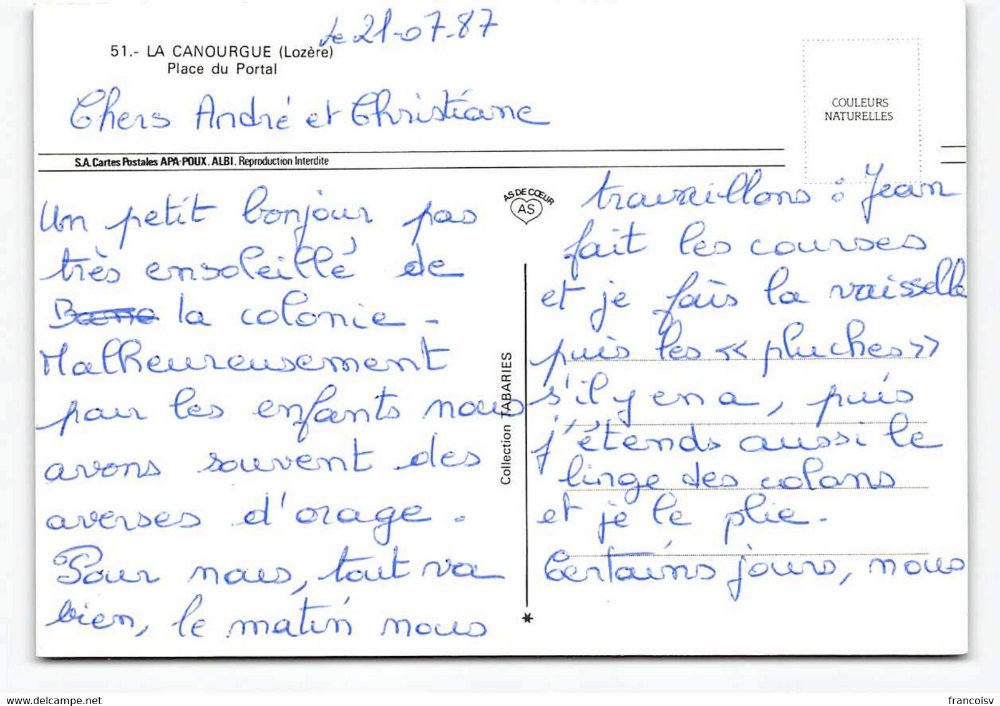 le 21-07-87
51.- LA CANOURGUE (Lozère)
Place du Portal
Chers André et Christiane
COULEURS
NATURELLES
S.A. Cartes Postales APA-POUX. ALBI. Reproduction Interdite
Un petit bonjour pas
très ensoleillé de
la colonie -
Malheureusement
pour les enfants nous
avons souvent des
averses d'orage.
Pour nous, tout va
bien, le matin nous
AS DE CŒUR
AS
Collection TABARIES
*
travaillons : Jean
fait les courses
et je fais la vaisselle
puis les « pluches »
s'il y en a, puis
j'étends aussi le
linge des colons
et je le plie.
Certains jours, nous
www.delcampe.net
francoisv